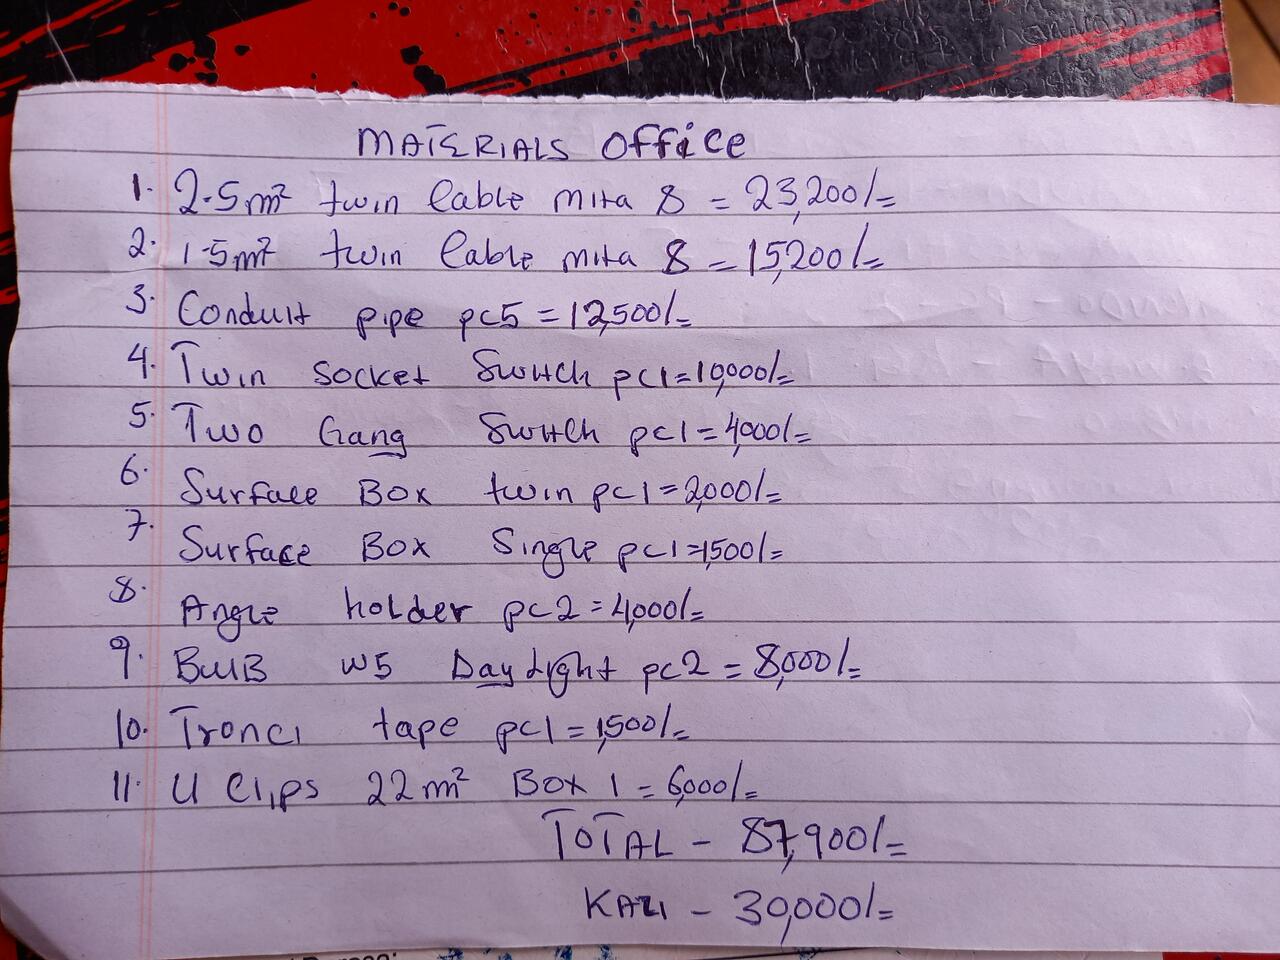 MATERIALS Office
1. 2.5m² twin Cable mita 8 = 23,200/=
2. 1.5m² twin Cable mita 8 = 15,200/=
3. Conduit pipe pc5 = 12,500/=
4. Twin Socket Switch pc1 = 10,000/=
5. Two Gang Switch pc1 = 4,000/=
6. Surface Box twin pc1 = 2,000/=
7. Surface Box Single pc1 = 1,500/=
8. Angle holder pc2 = 4,000/=
9. BulB W5 Day Light pc2 = 8,000/=
10. Tronci tape pc1 = 1,500/=
11. U Clips 22m² Box 1 = 6,000/=
TOTAL - 87,900/=
KAZI - 30,000/=